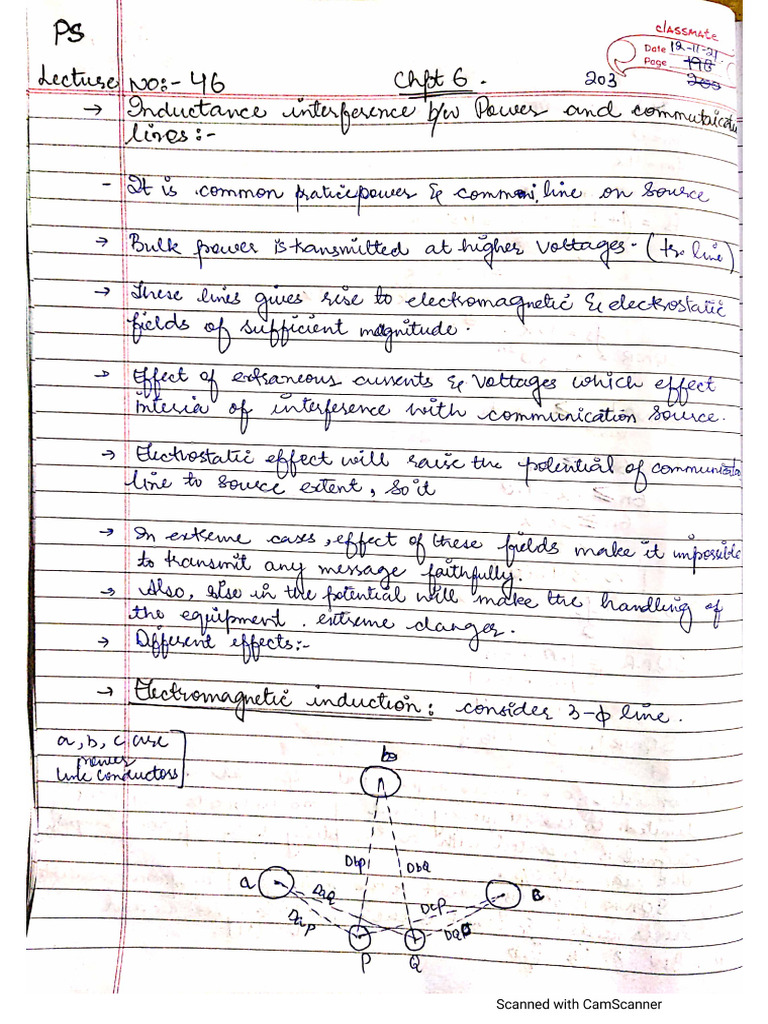 PS
classmate
Date 12-11-21
Page 198
203
Lecture No:- 46 Chpt 6. 203
→ Inductance interference b/w Power and commutaicatn
lines:-
- It is common praticepower & commni. line on source
→ Bulk power is transmitted at higher voltages. (tr. line)
→ These lines gives rise to electromagnetic & electrostatic
fields of sufficient magnitude.
→ Effect of extraneous currents & voltages which effect
interia of interference with communication source.
→ Electrostatic effect will raise the potential of communicatn
line to source extent, so it
→ In extreme cases, effect of these fields make it impossible
to transmit any message faithfully.
→ Also, rise in the potential will make the handling of
the equipment. extreme danger.
→ Different effects:-
→ Electromagnetic induction: consider 3-φ line.
a, b, c are
power
link conductors
b
Dbp DbQ
a DaQ Dcp
Dap DQ
P Q
Scanned with CamScanner